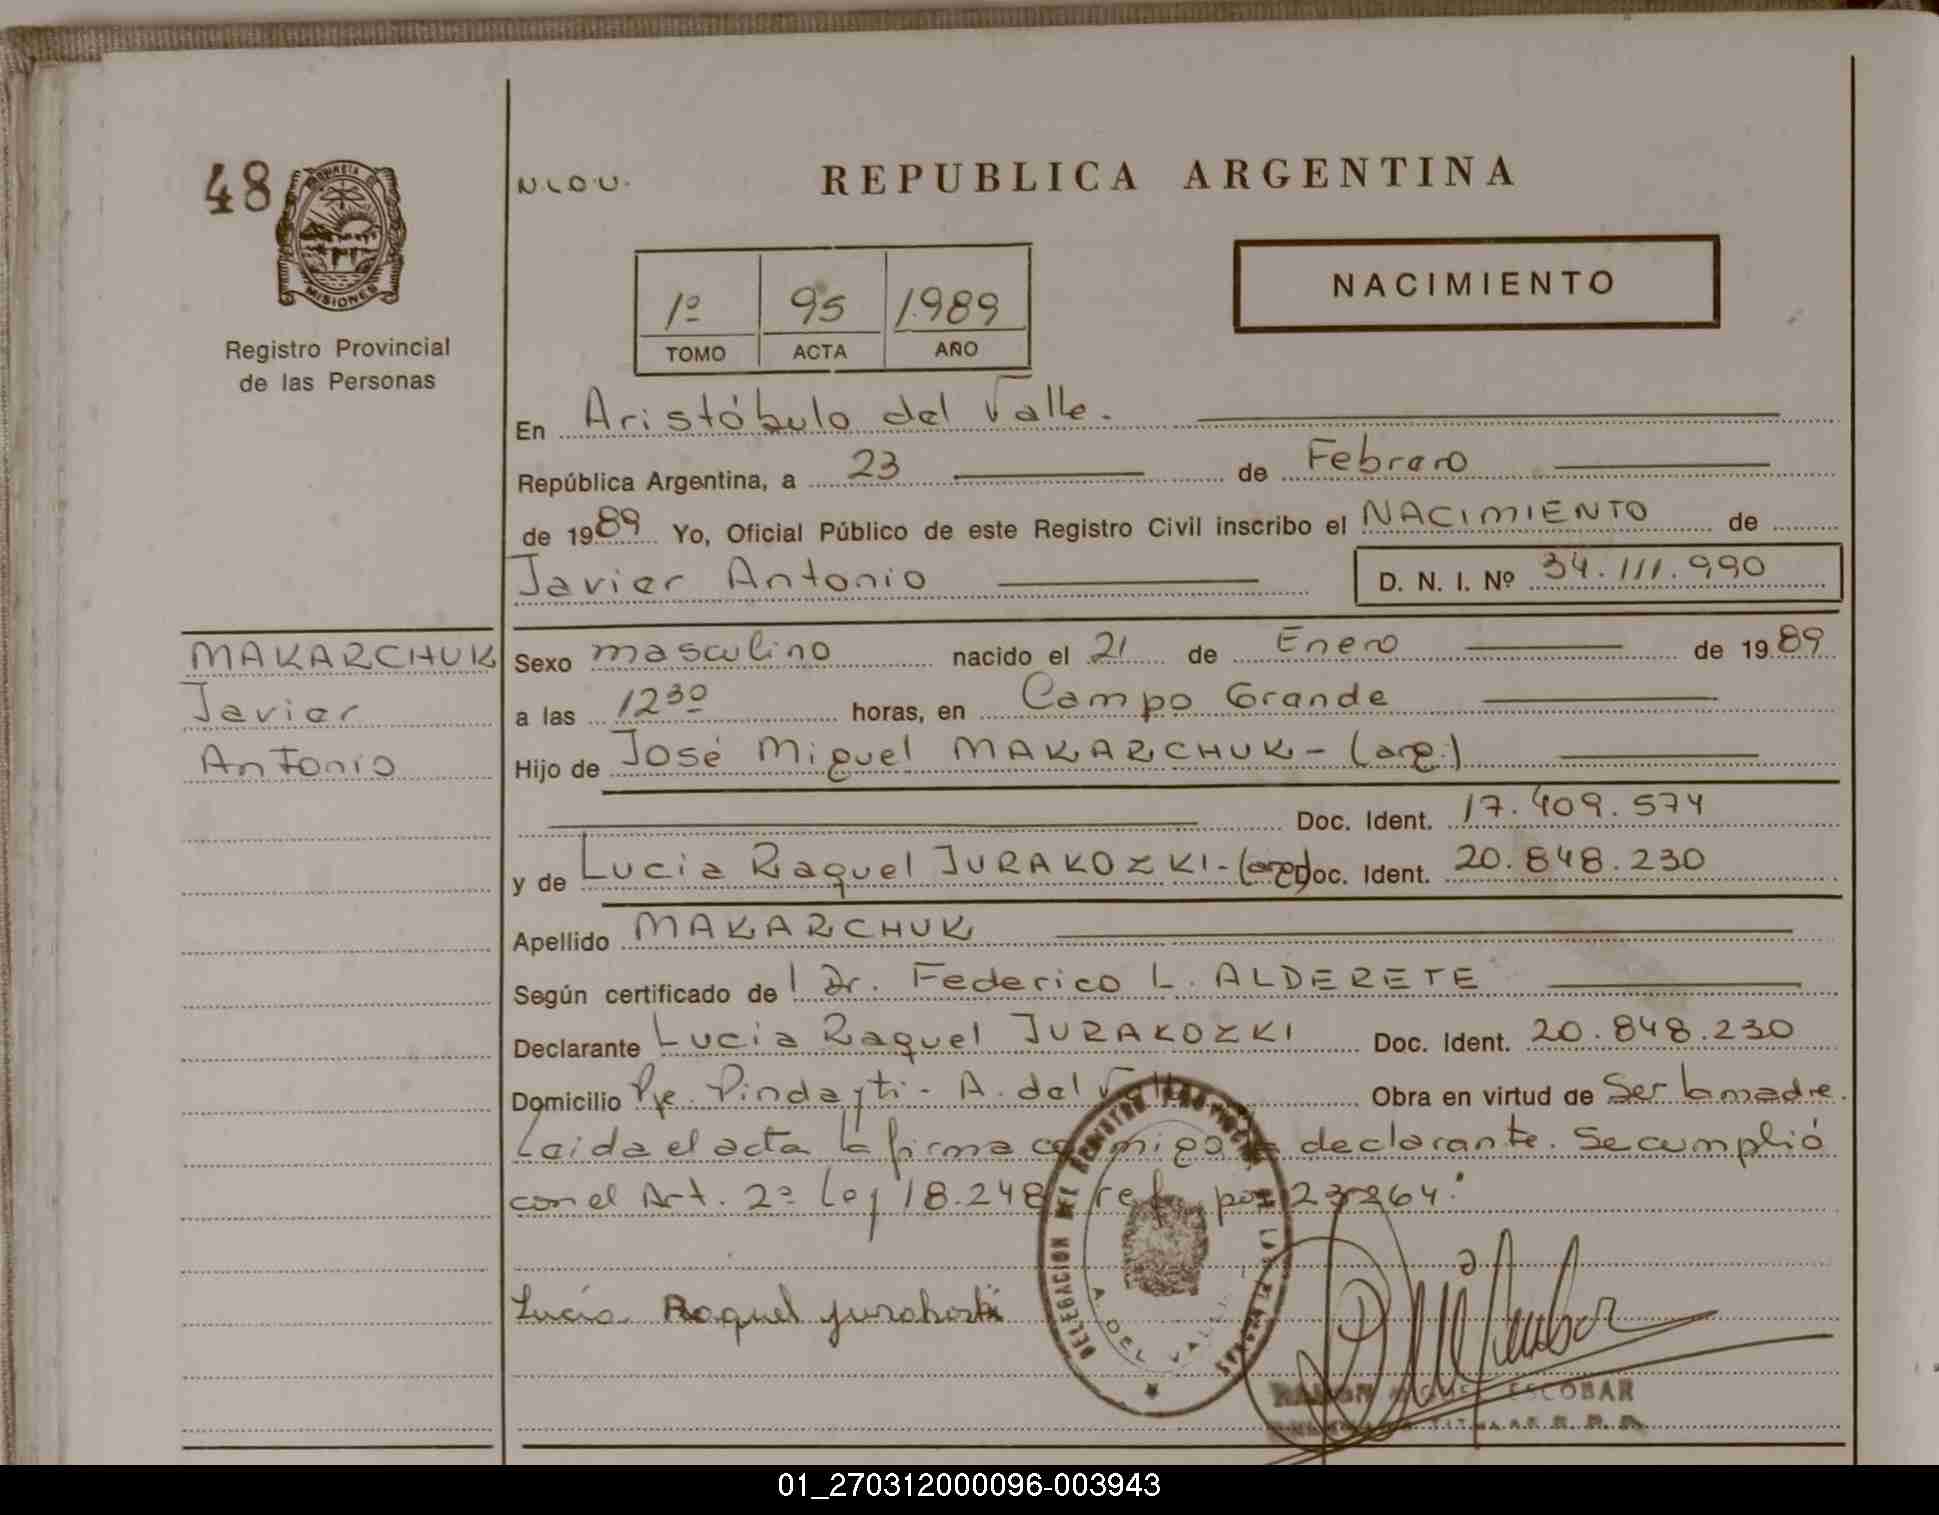 48
PROVINCIA DE
MISIONES
Registro Provincial
de las Personas
MAKARCHUK
Javier
Antonio
N.L.O.U.
REPUBLICA ARGENTINA
1º 95 1.989
TOMO ACTA AÑO
NACIMIENTO
En Aristóbulo del Valle.
República Argentina, a 23 de Febrero
de 1989 Yo, Oficial Público de este Registro Civil inscribo el NACIMIENTO de
Javier Antonio D. N. I. Nº 34.111.990
Sexo masculino nacido el 21 de Enero de 1989
a las 12 30 horas, en Campo Grande
Hijo de José Miguel MAKARCHUK - (arg.)
Doc. Ident. 17.409.574
y de Lucia Raquel JURAKOZKI - (arg) Doc. Ident. 20.848.230
Apellido MAKARCHUK
Según certificado de l Dr. Federico L. ALDERETE
Declarante Lucia Raquel JURAKOZKI Doc. Ident. 20.848.230
Domicilio Pje. Pindayti - A. del Valle Obra en virtud de Ser la madre.
Leida el acta la firma conmigo la declarante. Se cumplió
con el Art. 2º Ley 18.248 ref. por 23264.
Lucia Raquel Jurakoski
DELEGACION DEL REGISTRO PROVINCIAL DE LAS PERSONAS
A. DEL VALLE
RAMON ESCOBAR
TITULAR R. P. P.
01_270312000096-003943